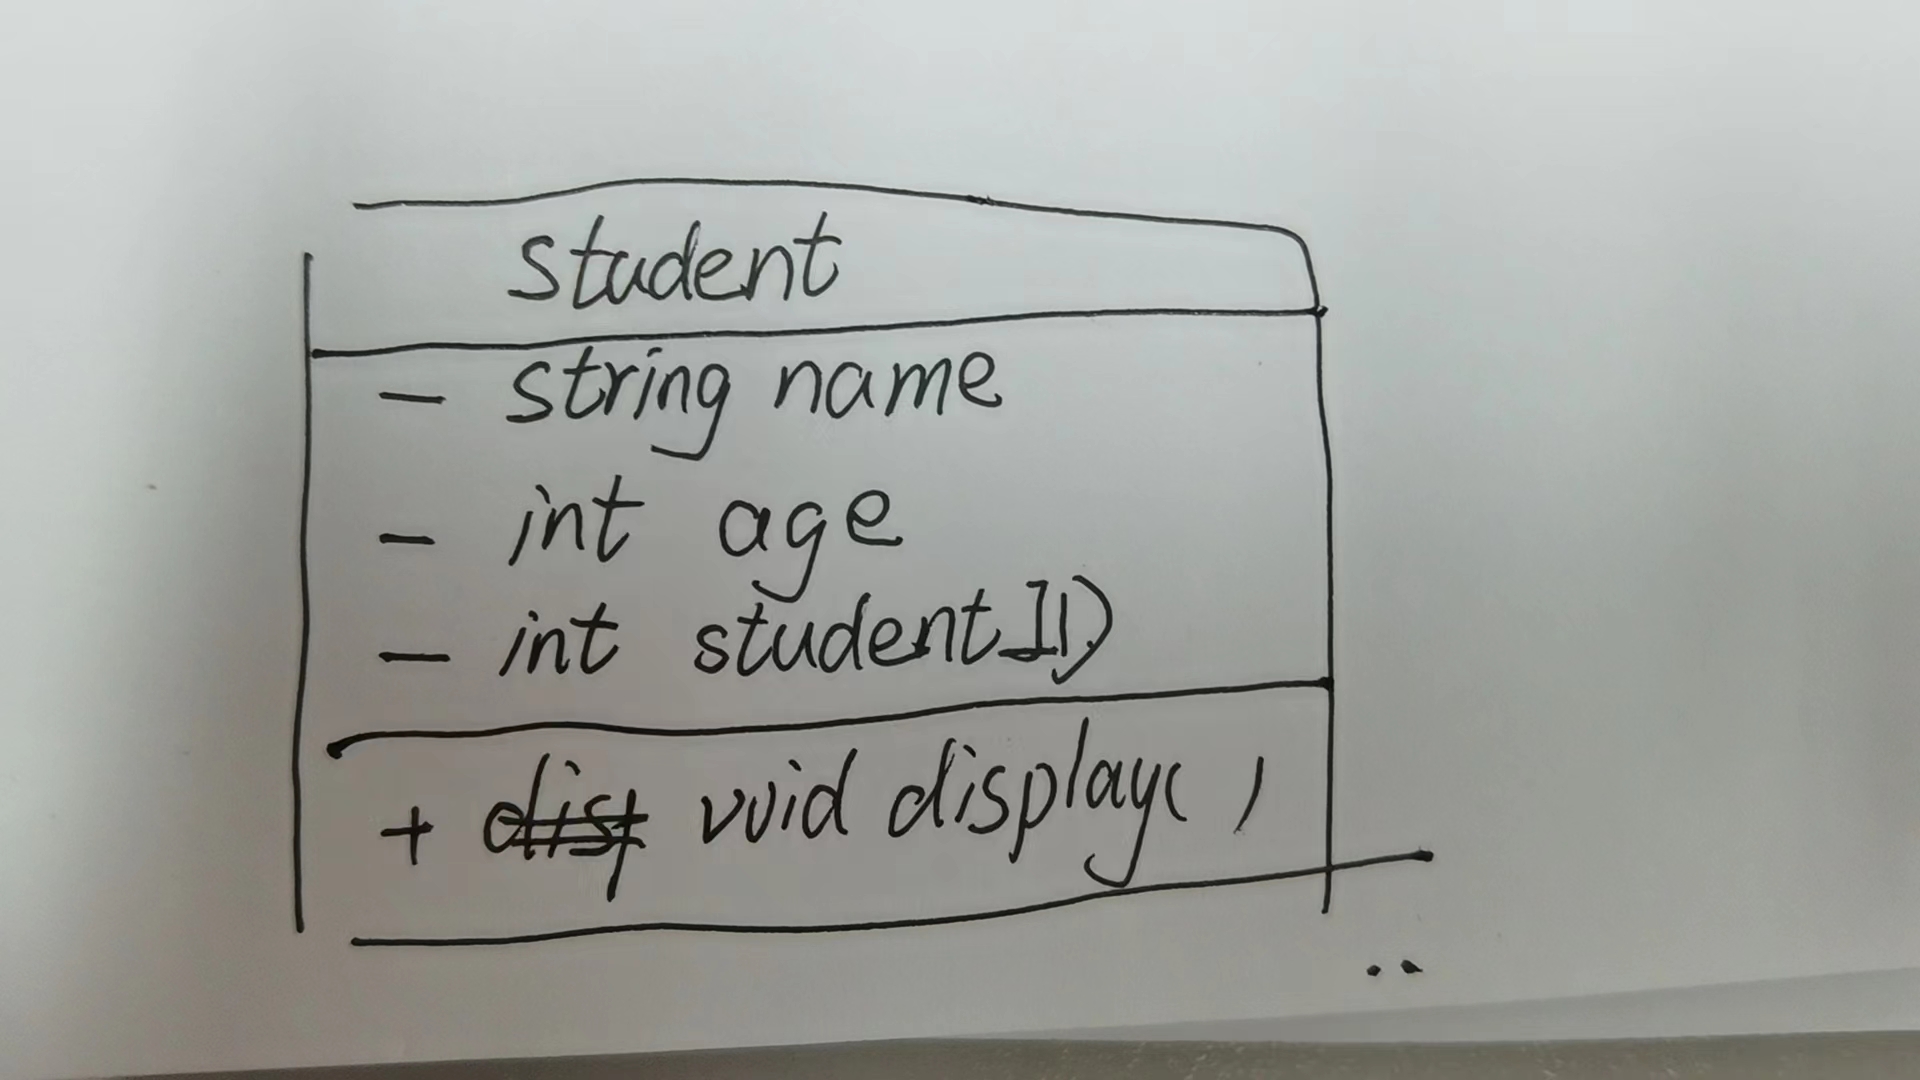 student
- string name
- int age
- int studentID
+ void display( )